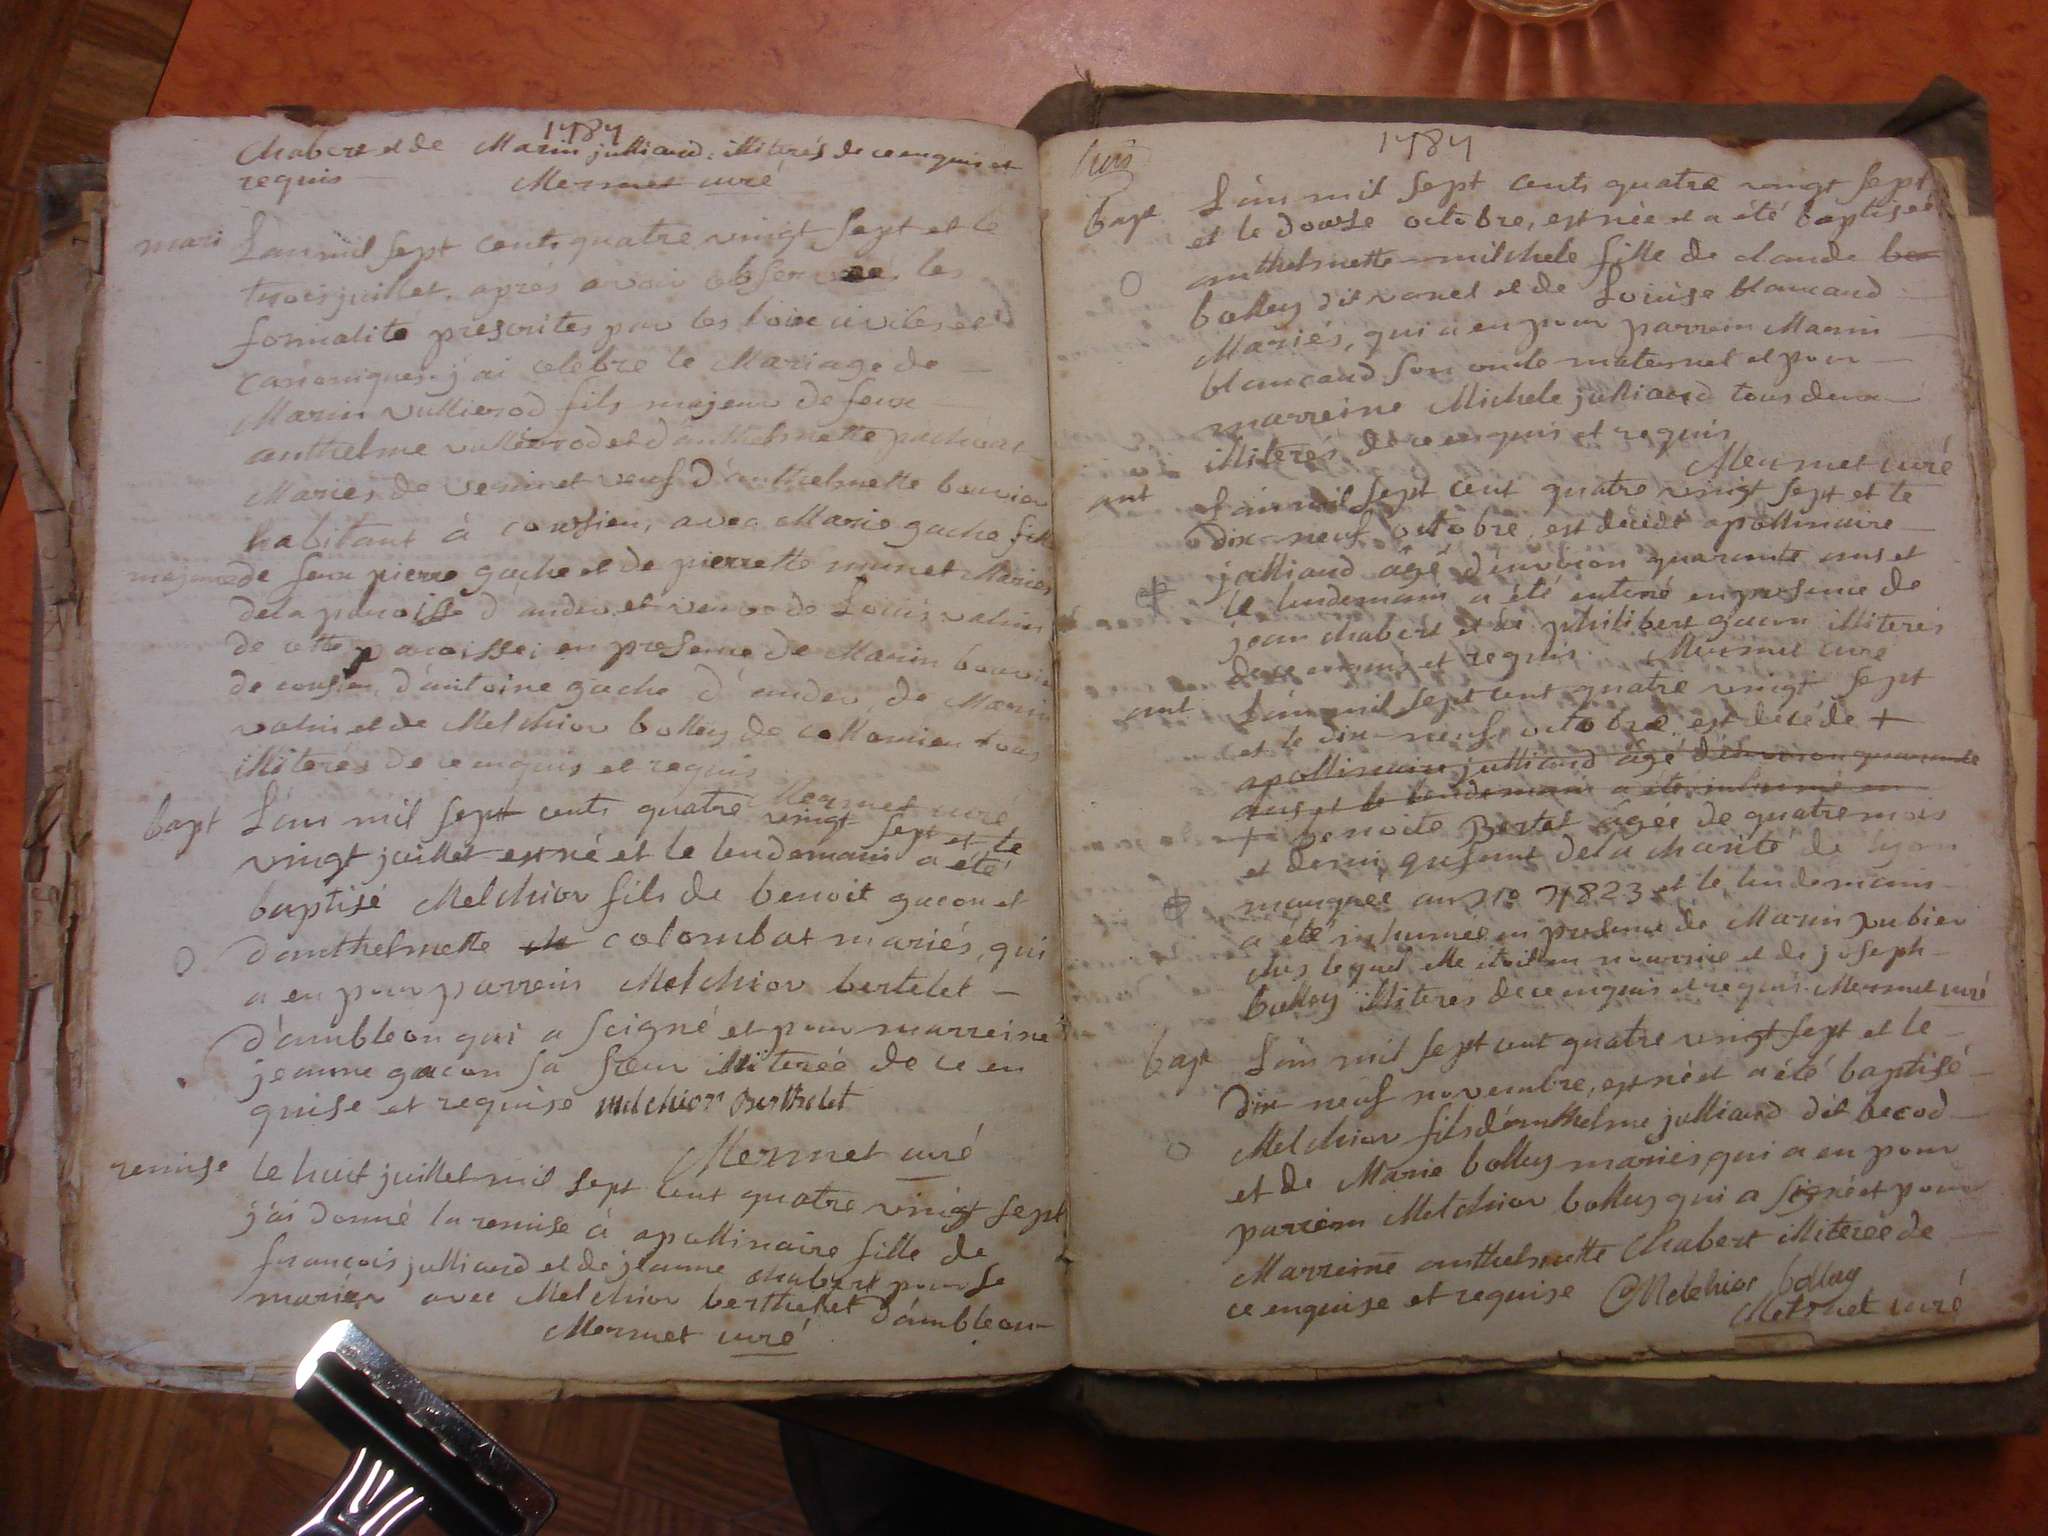 1787
chabert et de Marin julliand, illiterés de ce enquis et
requis Mermet curé
mari L'an mil sept cents quatre vingt sept et le
trois juillet, aprés avoir observée les
formalité prescrites par les loix civiles et
canoniques j'ai celebré le Mariage de
Marin vullierod fils majeur de feux
anthelme vullierod et d'anthelmette
Mariés de et veuf d'anthelmette bouvier
habitant à consieu, avec Marie gache fille
majeure de feux pierre gache et de pierrette munet Mariés
de la paroisse d'andev et veuve de Louis valin
de cette paroisse; en presence de Marin bouvier
de d'antoine gache d'andev, de Marin
valin et de Melchior bolley de collomieu tous
illiterés de ce enquis et requis
Mermet curé
bapt L'an mil sept cents quatre vingt sept et le
vingt juillet est né et le lendemain a été
baptisé Melchior fils de benoit gacon et
d'anthelmette colombat mariés, qui
a eu pour parrein Melchior bertelet
d'ambleon qui a scigné et pour marreine
jeanne gacon sa sœur illiterée de ce en
quise et requise melchior Berthelet
Mermet curé
remise le huit juillet mil sept cent quatre vingt sept
j'ai donné la remise à apollinaire fille de
françois julliand et de jeanne chabert pour se
marier avec Melchior berthelet d'ambleon
Mermet curé
1787
bapt L'an mil sept cents quatre vingt sept
et le douse octobre, est née et a été baptisée
anthelmette michele fille de claude be
bolley dit vanet et de Louise blancand
Mariés, qui a eu pour parrein Marin
blancand son oncle maternel et pour
marreine Michele julliand tous deux
illiterés de ce enquis et requis
Mermet curé
ant L'an mil sept cent quatre vingt sept et le
dix-neuf octobre, est decédé apollinaire
julliand âgé d'environ quarante ans et
le lendemain a été enterré en presence de
jean chabert et de philibert gacon illiterés
de ce enquis et requis Mermet curé
ant L'an mil sept cent quatre vingt sept
et le dix-neuf octobre est decéde +
apollinaire julliand âgé d'environ quarante
ans et le lendemain a été inhumé en
+ benoite Bertet âgée de quatre mois
et demi, enfant de la charité de lyon
marquée au No 7823 et le lendemain
a été inhumée en presence de Marin pubier
ches lequel elle étoit en nourrice et de joseph
bolley illiteres de ce enquis et requis Mermet curé
bapt L'an mil sept cent quatre vingt sept et le
dix neuf novembre, est né et a été baptisé
Melchior fils d'anthelme julliand dit becod
et de Marie bolley mariés, qui a eu pour
parrein Melchior bolley qui a signé et pour
Marreine anthelmette Chabert illiterée de
ce enquise et requise Melchior bolley
Mermet curé